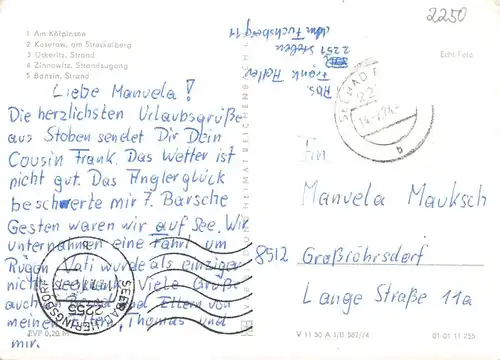 2250
1 Am Kölpinsee
2 Koserow, am Streckelberg
3 Ückeritz, Strand
4 Zinnowitz, Strandzugang
5 Bansin, Strand
Echt Foto
Abs.
Frank Adler
2251 Stoben
Am Fuchsberg 11
Liebe Manuela!
Die herzlichsten Urlaubsgrüße
aus Stoben sendet Dir Dein
Cousin Frank. Das Wetter ist
nicht gut. Das Anglerglück
bescherte mir 7 Barsche
Gestern waren wir auf See. Wir
unternahmen eine Fahrt um
Rügen. Vati wurde als einziger
nicht seekrank. Viele Grüße
auch an und Eltern von
meinen Eltern, Thomas und
mir.
Manuela Mauksch
8512 Großröhrsdorf
Lange Straße 11a
SEEBAD HERINGSDORF
2255
EVP 0,20 M
V 11 50 A 1/B 587/74
01 01 11 255